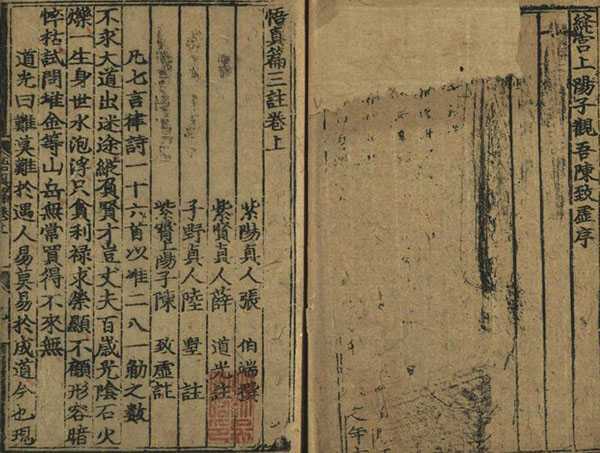 絳宮上陽子觀吾陳致虛序
之年
悟真篇三註卷上
紫陽真人張 伯端 撰
紫賢真人薛 道光 註
子野真人陸 墅 註
紫陽子陳 致虛 註
凡七言律詩一十六首以准二八一觔之數
不求大道出迷途縱負賢才豈丈夫百歲光陰石火
爍一生身世水泡浮只貪利祿求榮顯不顧形容暗
悴枯試問堆金等山岳無常買得不來無
道光曰難莫難於遇人易莫易於成道今也現